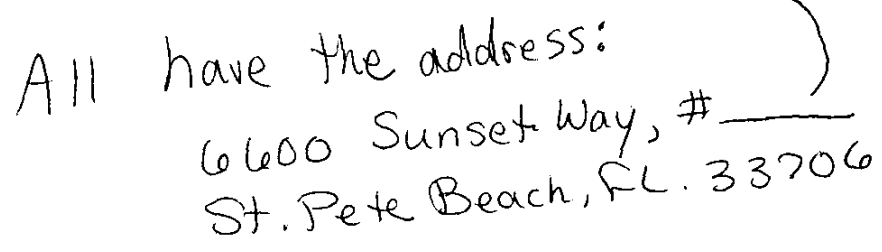 All have the address:
6600 Sunset Way, #______
St. Pete Beach, FL. 33706